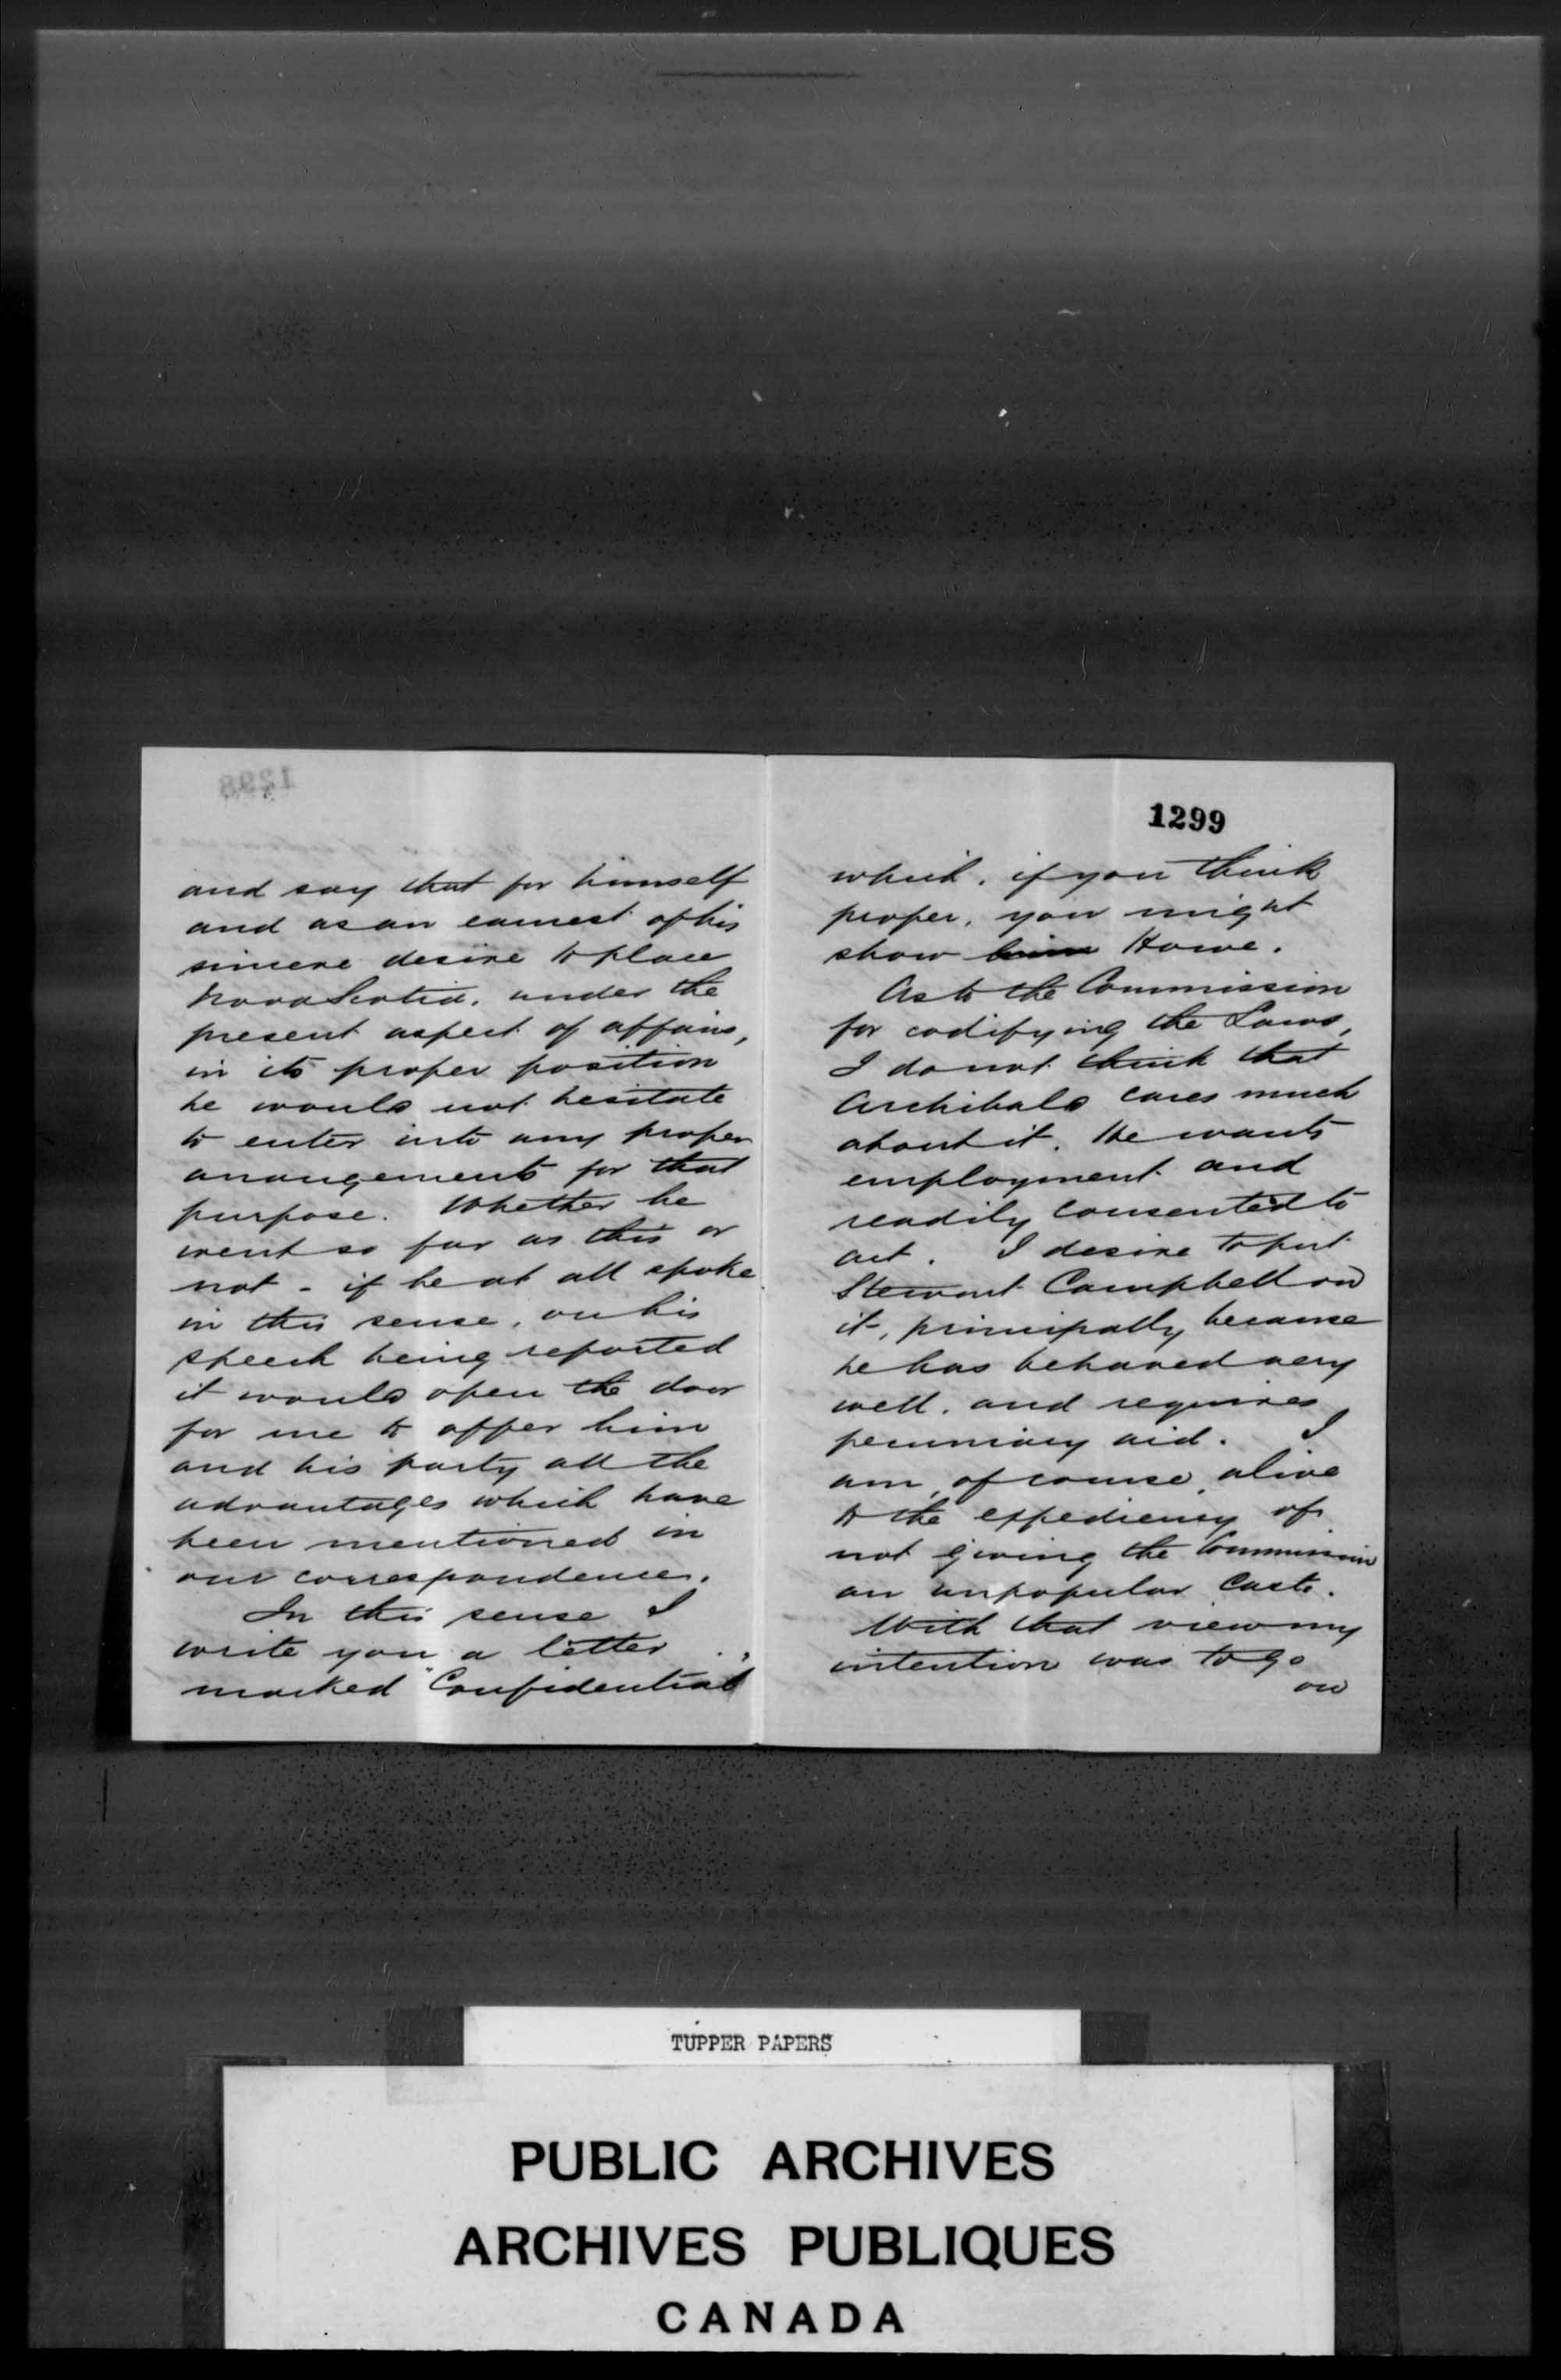 and say that for himself
and as an earnest of his
sincere desire to place
Nova Scotia, under the
present aspect of affairs,
in its proper position
he would not hesitate
to enter into any proper
arrangements for that
purpose. Whether he
went so far as this or
not - if he at all spoke
in this sense, on his
speech being reported
it would open the door
for me to offer him
and his party all the
advantages which have
been mentioned in
our correspondence.
In this sense I
write you a letter
marked "Confidential"
1299
which, if you think
proper, you might
show him Howe.
As to the Commission
for codifying the Laws,
I do not think that
Archibald cares much
about it. He wants
employment and
readily consented to
act. I desire to put
Stewart Campbell on
it, principally because
he has behaved very
well, and requires
pecuniary aid. I
am, of course, alive
to the expediency of
not giving the Commission
an unpopular caste.
With that view my
intention was to go
on
TUPPER PAPERS
PUBLIC ARCHIVES
ARCHIVES PUBLIQUES
CANADA